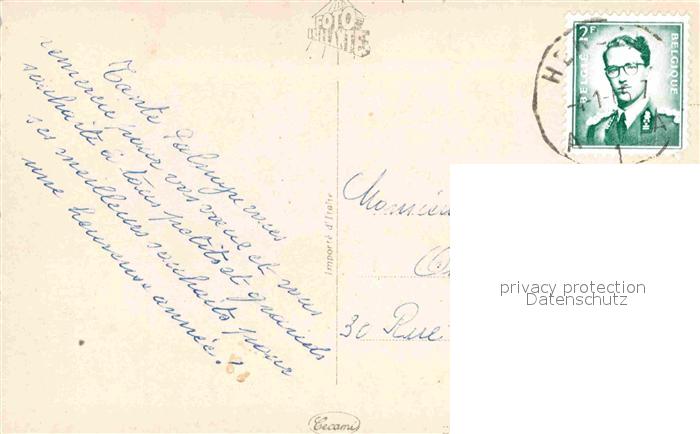 FOTO
Tante Palmyre vous
remercie pour vos vœux et vous
souhaite à tous petits et grands
ses meilleurs souhaits pour
une heureuse année.
Importé d'Italie
Cecami
2F
BELGIE BELGIQUE
A 1 A
Monsieur
30 Rue
privacy protection
Datenschutz